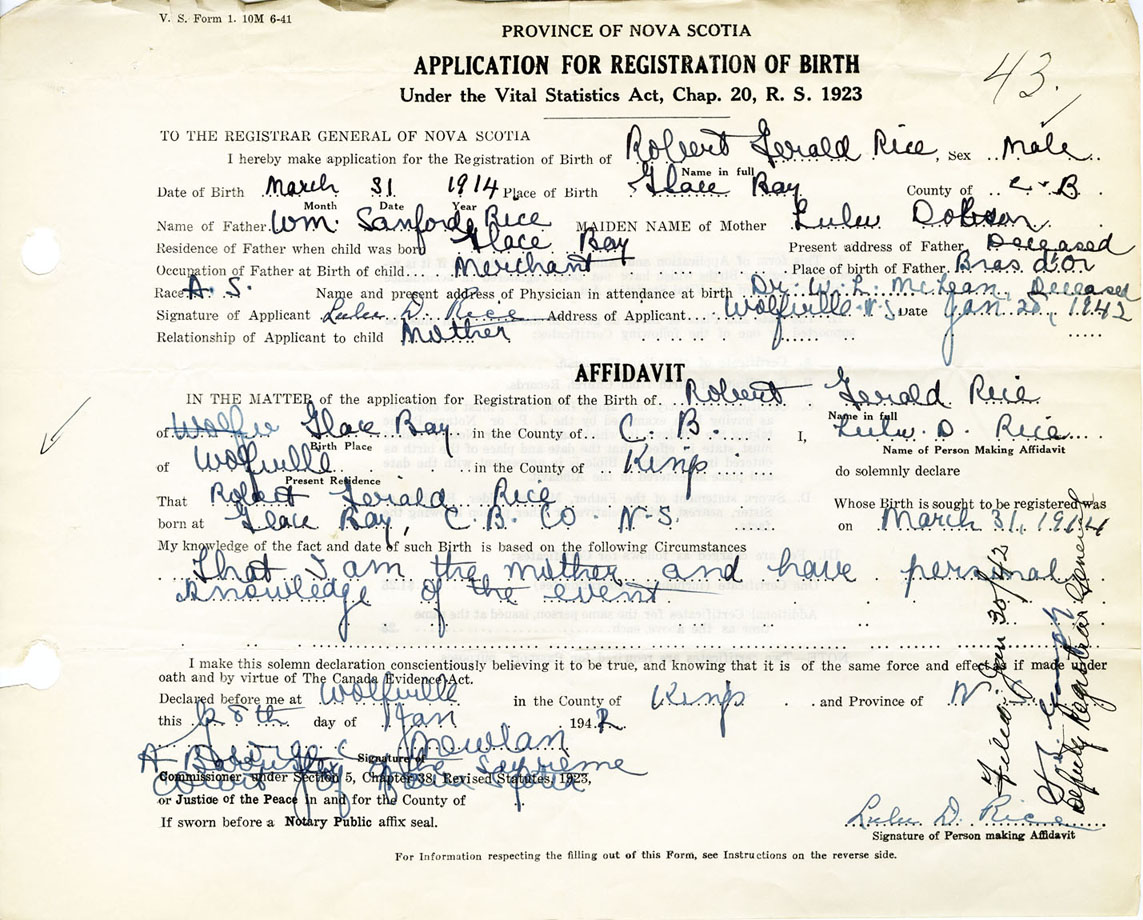 V. S. Form 1. 10M 6-41
PROVINCE OF NOVA SCOTIA
APPLICATION FOR REGISTRATION OF BIRTH
43.
Under the Vital Statistics Act, Chap. 20, R. S. 1923
TO THE REGISTRAR GENERAL OF NOVA SCOTIA
I hereby make application for the Registration of Birth of Robert Gerald Rice, Sex Male
Name in full
Date of Birth March 31 1914 Place of Birth Glace Bay County of C. B
Month Date Year
Name of Father Wm. Sanford Rice MAIDEN NAME of Mother Lulu Dobson
Residence of Father when child was born Glace Bay Present address of Father Deceased
Occupation of Father at Birth of child Merchant Place of birth of Father Bras d'Or
Race A. S. Name and present address of Physician in attendance at birth Dr. W. L. McLean, Deceased
Signature of Applicant Lulu D. Rice Address of Applicant Wolfville N.S Date Jan. 20, 1942
Relationship of Applicant to child Mother
AFFIDAVIT
IN THE MATTER of the application for Registration of the Birth of Robert Gerald Rice
Name in full
of Glace Bay in the County of C. B. I, Lulu D. Rice
Birth Place Name of Person Making Affidavit
of Wolfville in the County of Kings do solemnly declare
Present Residence
That Robert Gerald Rice Whose Birth is sought to be registered was
born at Glace Bay, C. B. Co N.S. on March 31, 1914
My knowledge of the fact and date of such Birth is based on the following Circumstances
That I am the mother and have personal
knowledge of the event
I make this solemn declaration conscientiously believing it to be true, and knowing that it is of the same force and effect as if made under
oath and by virtue of The Canada Evidence Act.
Declared before me at Wolfville in the County of Kings and Province of N.S.
this 28th day of Jan 1942
George C. Nowlan
Signature of
A Barrister of the Supreme
Commissioner, under Section 5, Chapter 38, Revised Statutes, 1923,
Court of Nova Scotia
or Justice of the Peace in and for the County of
If sworn before a Notary Public affix seal.
Lulu D. Rice
Signature of Person making Affidavit
For Information respecting the filling out of this Form, see Instructions on the reverse side.
Filed: Jan 30/42
Deputy Registrar General